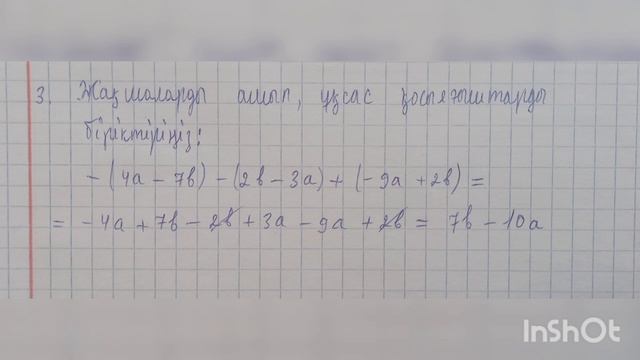 3. Жақшаларды ашып, ұқсас қосылғыштарды
біріктіріңіз:
- (4a - 7b) - (2b - 3a) + (-9a + 2b) =
= -4a + 7b - 2b + 3a - 9a + 2b = 7b - 10a
InShOt